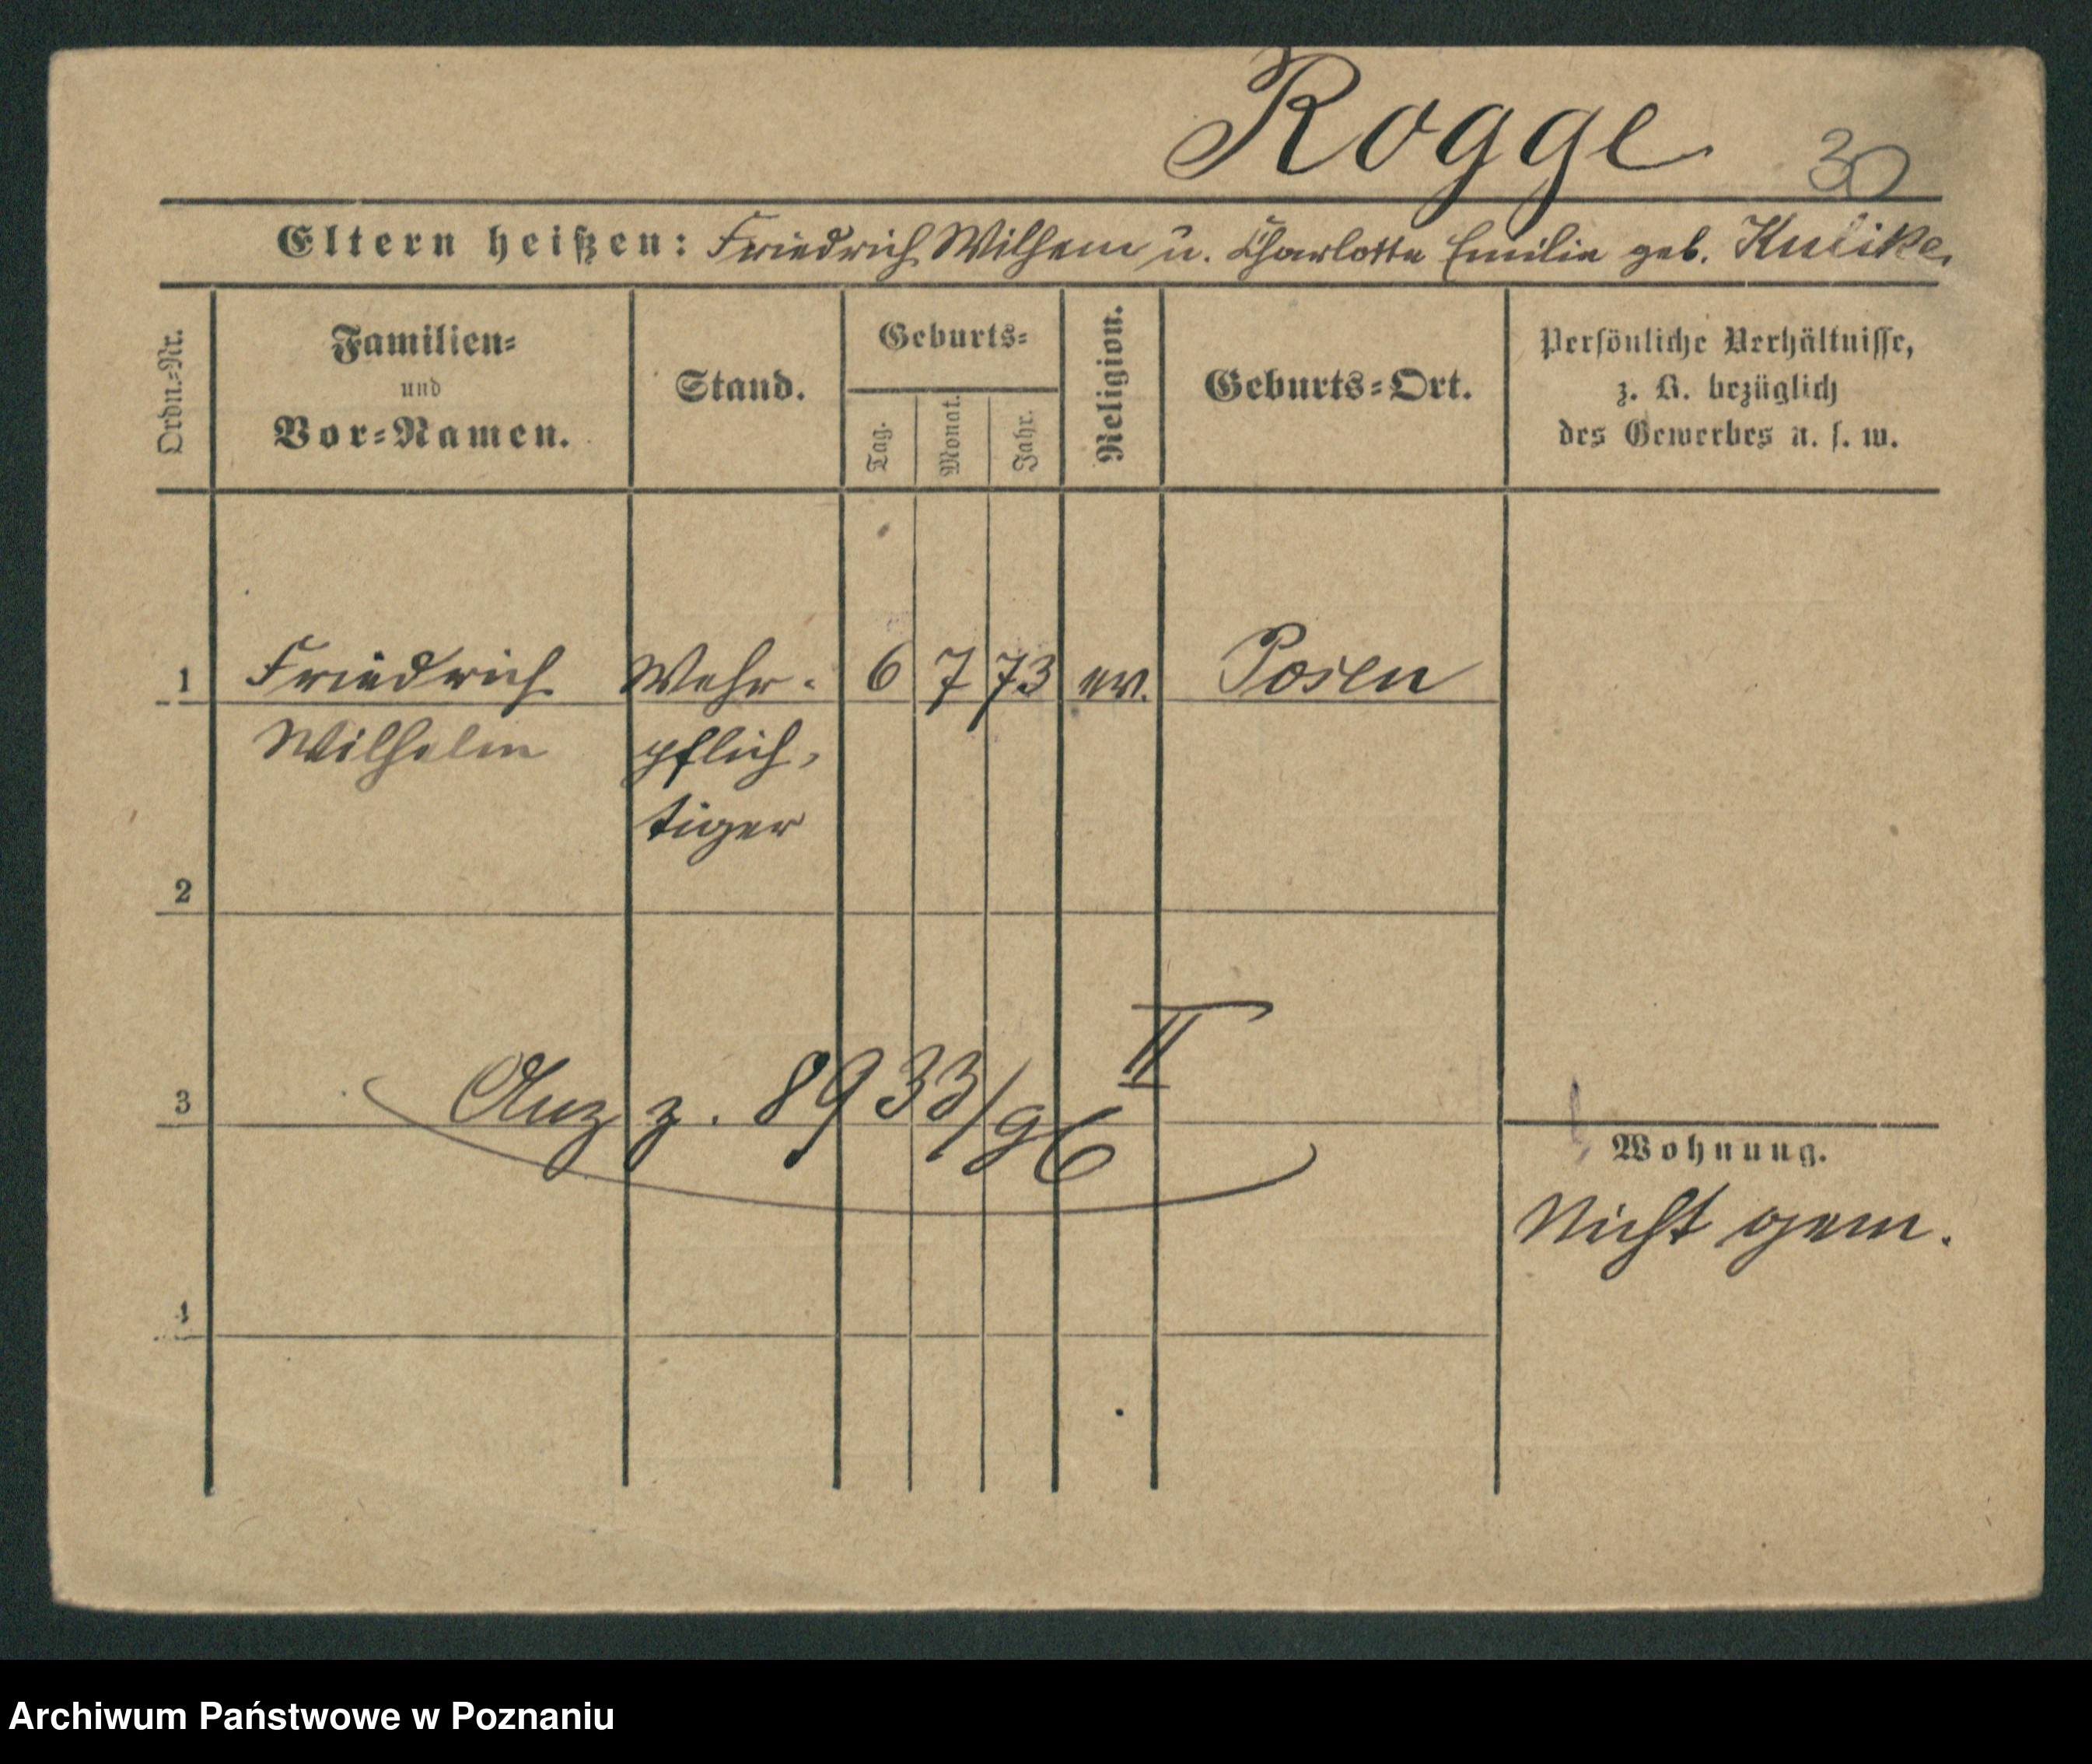 Rogge
30
Eltern heißen: Friedrich Wilhem u. Charlotte Emilie geb. Kulike.
Ordn.-Nr.
Familien-
und
Vor-Namen.
Stand.
Geburts-
Tag.
Monat.
Jahr.
Religion.
Geburts-Ort.
Persönliche Verhältnisse,
z. B. bezüglich
des Gewerbes u. s. w.
1 Friedrich Wehr- 6 7 73 ev. Posen
Wilhelm pflich-
tiger
2
3 Anz z. 8933/96 II
Wohnung.
Nicht gem.
4
Archiwum Państwowe w Poznaniu